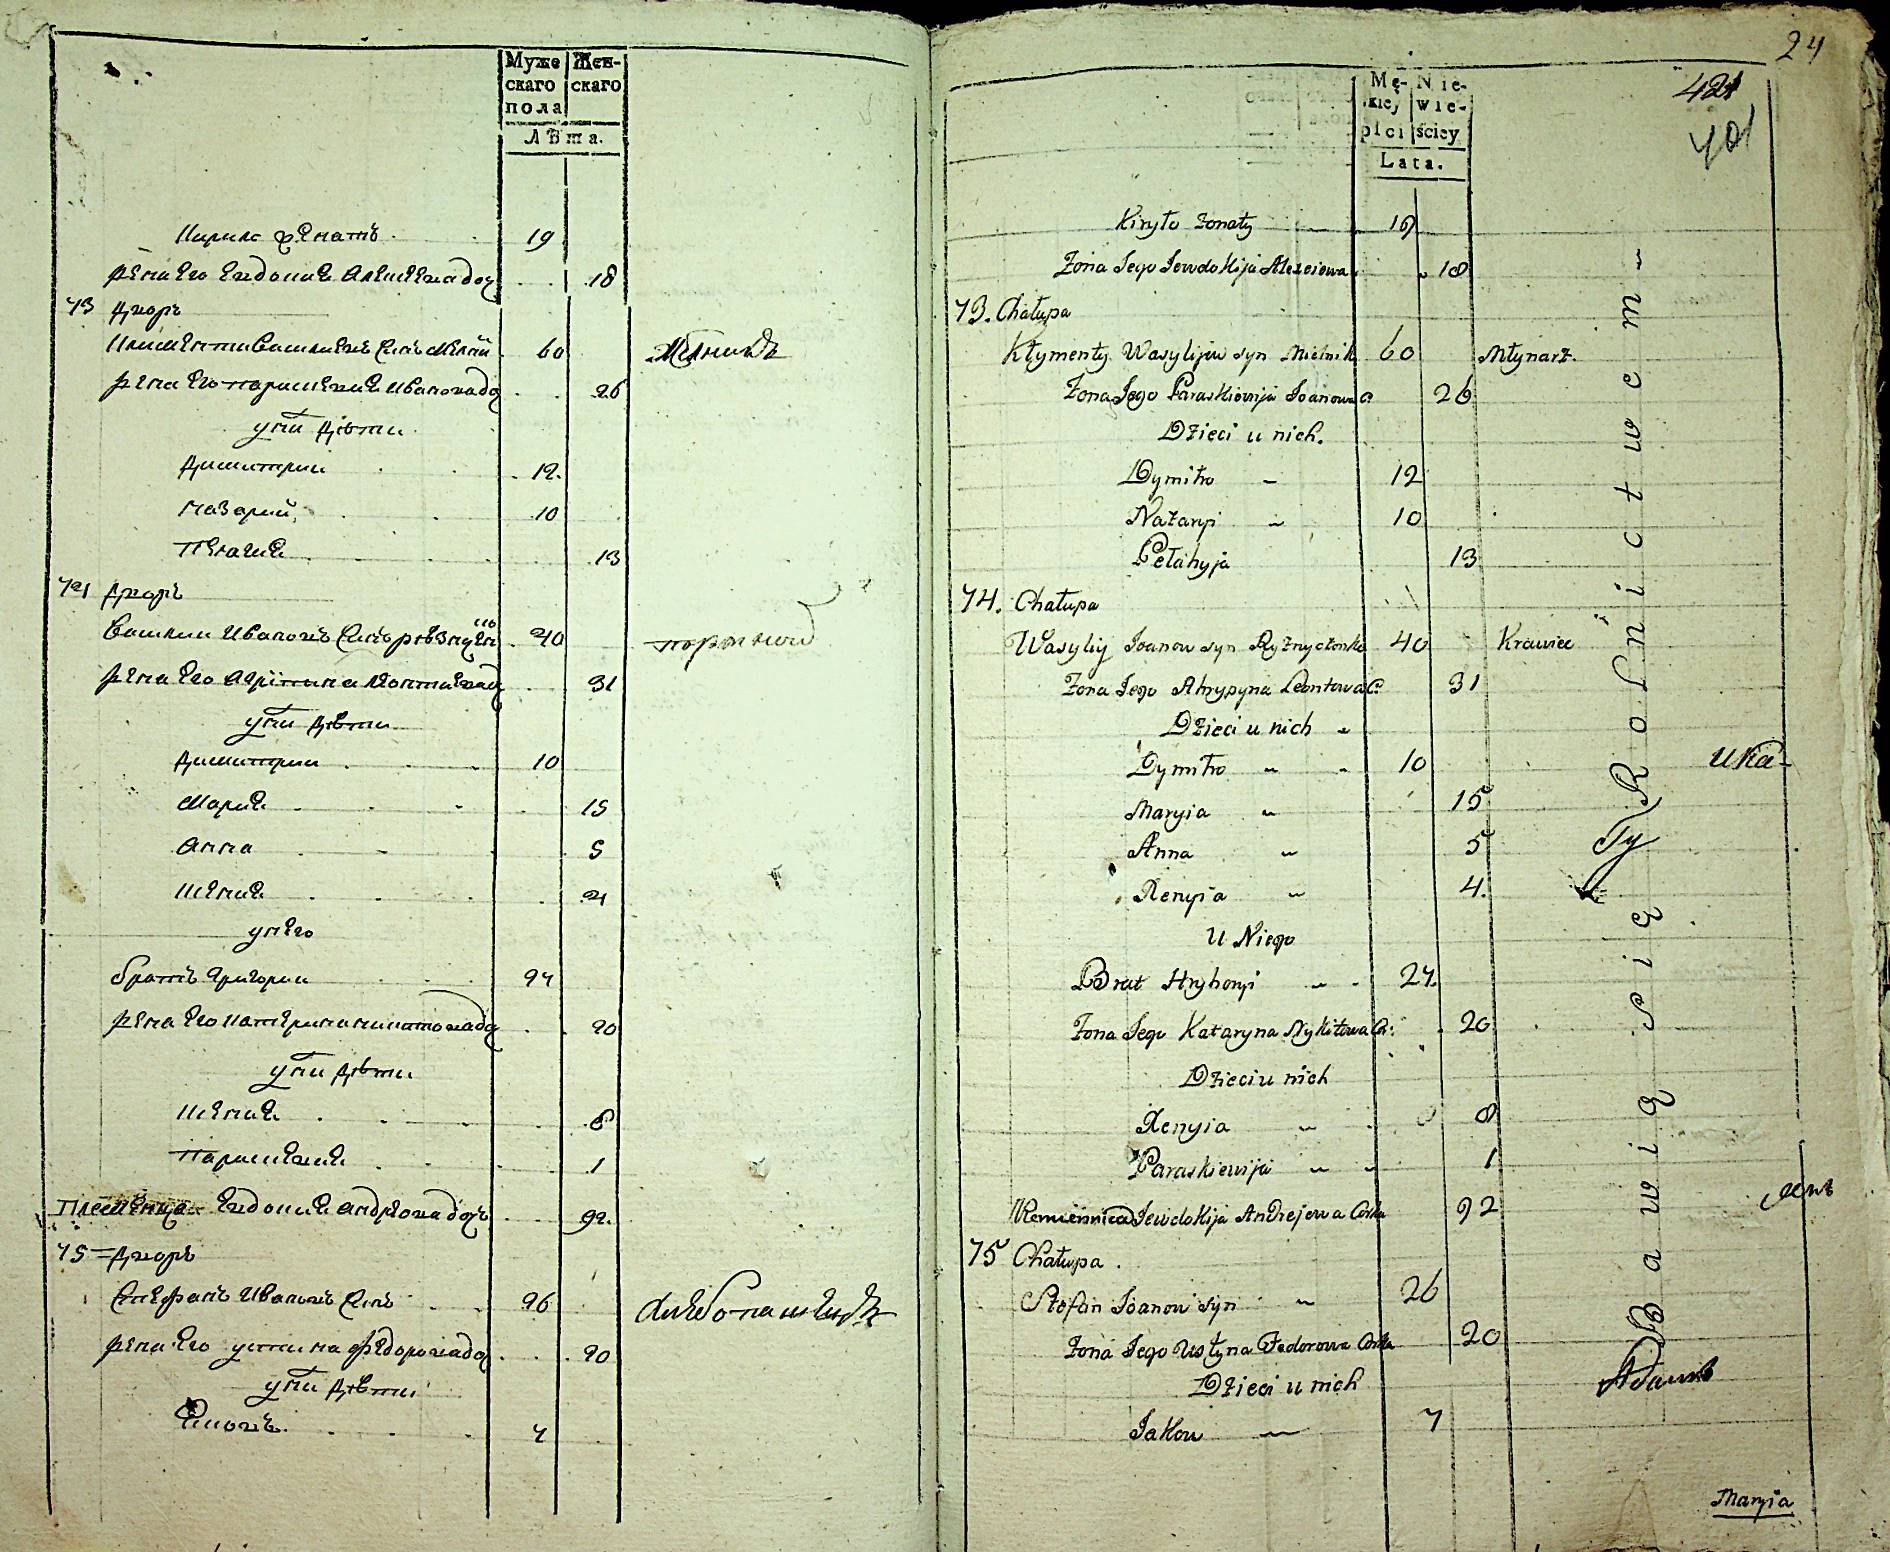 Муже
скаго
пола
Жен-
скаго
Лѣта.
Кирилъ женатъ 19
жена его Евдокия Алексѣева доч 18
73 Дворъ
Климентий Василиевъ синъ 60 Мелникъ
жена его Параскевия Иванова до 26
у ни дѣти
Димитрии 12.
Назарий 10
Пелагия 13
74 Дворъ
Василии Ивановъ синъ 40 портной
жена его Агрипина Леонтиева 31
у ни дѣти
Димитрии 10
Мария 15
Анна 5
Ксения 4
у него
братъ Григории 24
жена его Катерина Никитова до 20
у ни дѣти
Ксения 8
Параскевия 1
племеница Евдокия Андреова дочь 92.
75 Дворъ
Стефанъ Ивановъ синъ 26 хлебопашецъ
жена его Устина Федорова до 20
у ни дѣти
Яковъ. 7
24
421
401
Mę-
skiej
płci
Nie-
wie-
ściey
Lata.
Kiryło żonaty 19
Żona Jego Jewdokija Alexeiowa 18
73. Chałupa
Kłymenty Wasylijow syn Mielnik 60 Młynarz.
Żona Jego Paraskiewija Joanowa C. 26
Dzieci u nich.
Dymitro 12
Nazaryi 10
Pełahyja 13
74. Chałupa
Wasyliy Joanow syn 40 Krawiec
Żona Jego Ahrypyna Leontowa C. 31
Dzieci u nich
Dymitro 10
Maryia 15
Anna 5
Xenyia 4.
U Niego
Brat Hryhoryi 24.
Żona Jego Kataryna Nykitowa C. 20
Dzieci u nich
Xenyia 8
Paraskiewija 1
Plemiennica Jewdokija Andrejowa Corka 92
75 Chałupa.
Stefan Joanow syn 26
Żona Jego Ustyna Fedorowa Corka 20
Dzieci u nich
Jakow 7
Bawią się Rolnictwem
Maryia